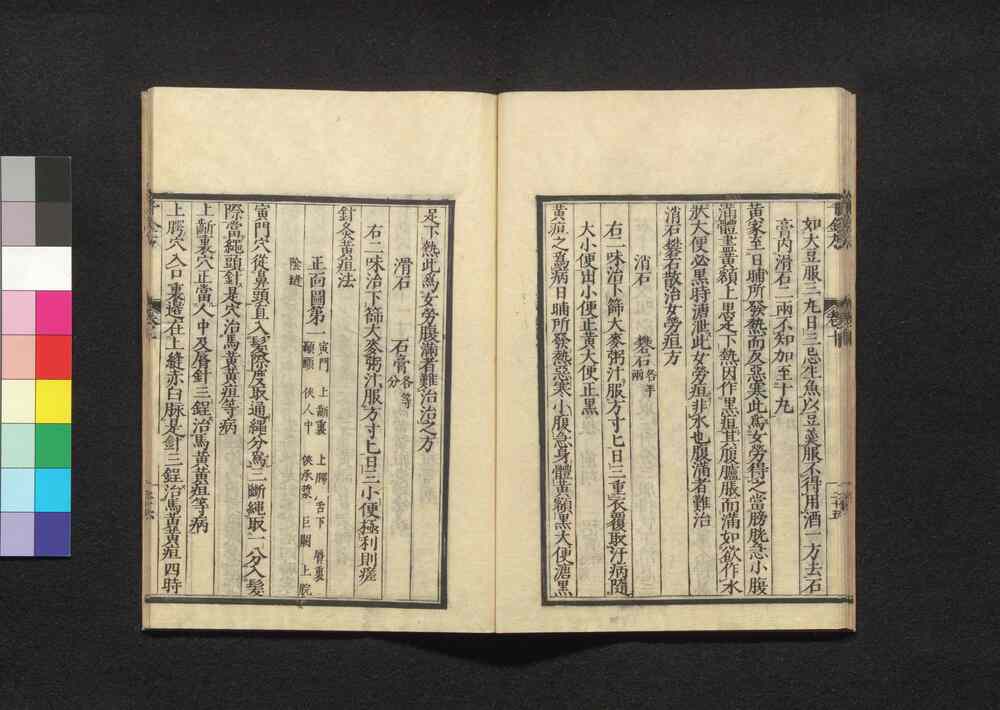 如大豆服三丸日三忌生魚以豆羹服不得用酒一方去石
膏內滑石二兩不知加至十丸
黃家至日晡所發熱而反惡寒此爲女勞得之當膀胱急小腹
滿體盡黃額上黑足下熱因作黑疸其腹臚脹而滿如欲作水
狀大便必黑時溏泄此女勞疸非水也腹滿者難治
消石礬石散治女勞疸方
消石 礬石各半兩
右二味治下篩大麥粥汁服方寸匕日三重衣覆取汗病隨
大小便出小便正黃大便正黑
黃疸之爲病日晡所發熱惡寒小腹急身體黃額黑大便溏黑
足下熱此爲女勞腹滿者難治治之方
滑石 石膏各等分
右二味治下篩大麥粥汁服方寸匕日三小便極利則瘥
針灸黃疸法
正面圖第一 寅門 上齗裏 上腭 舌下 脣裏
顳顬 俠人中 俠承漿 巨闕 上脘
陰縫
寅門穴從鼻頭直入髮際度取通繩分爲三斷繩取一分入髮
際當繩頭針是穴治馬黃黃疸等病
上齗裏穴正當人中及脣針三鋥治馬黃黃疸等病
上腭穴入口裏邊在上縫赤白脉是針三鋥治馬黃黃疸四時